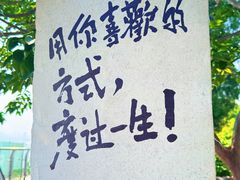 用你喜歡的
方式，
度过一生！